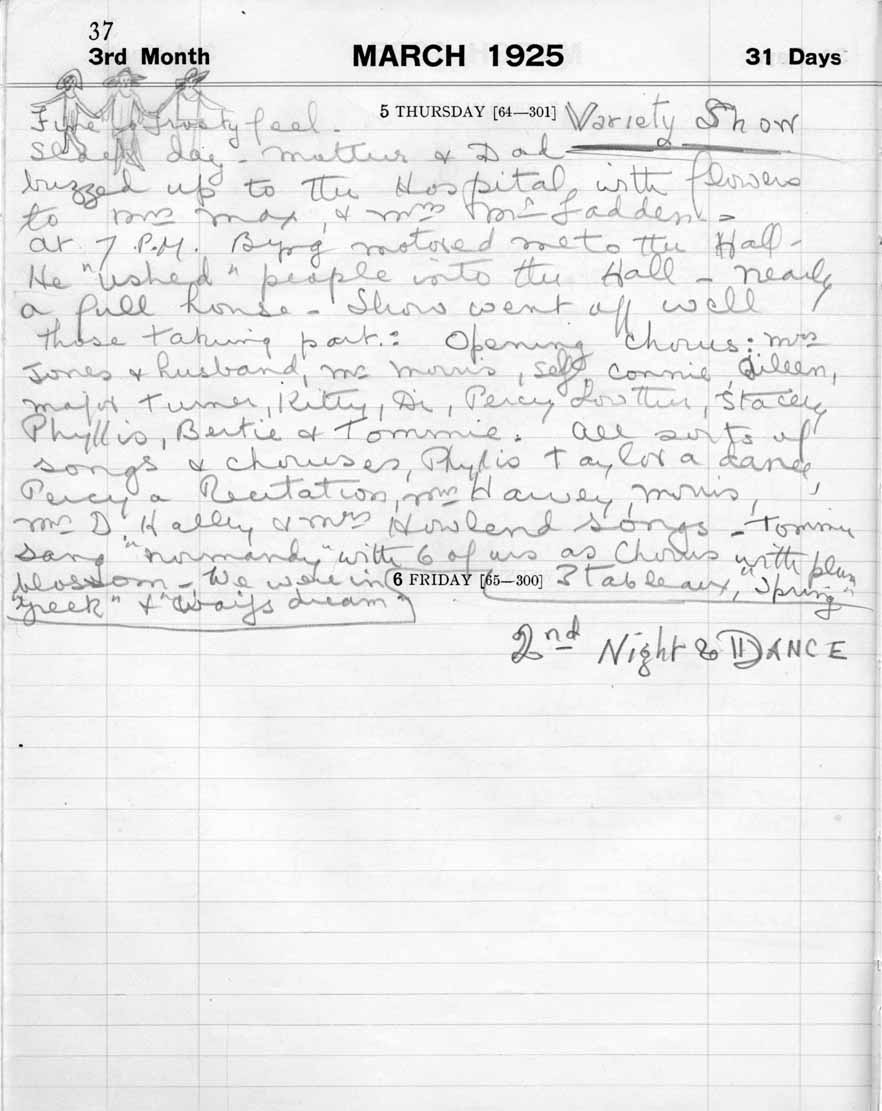 37
3rd Month MARCH 1925 31 Days
5 THURSDAY [64—301] Variety Show
Fine & frosty feel -
day - mother & Dad
buzzed up to the Hospital, with flowers
to Mrs Max, & Mrs McFadden -
at 7 P.M. Byng motored me to the Hall -
He "ushed" people into the Hall - nearly
a full house - Show went off well
those taking part: Opening Chorus: Mrs
Jones & husband, Mc Morris, self, Connie, Eileen,
major Turner, Kitty, Di, Percy Lowther, Stacey
Phyllis, Bertie & Tommie. All sorts of
songs & choruses, Phyllis Taylor a dance
Percy a Recitation, Mrs Harvey, Morris,
Mrs D. Halley & Mrs Howland songs - Tommy
sang "normandy" with 6 of us as Chorus with plum
blossom - We were in 3 tableaux, "Spring"
6 FRIDAY [65—300]
"Greek" & "Waifs dream"
2nd Night & DANCE